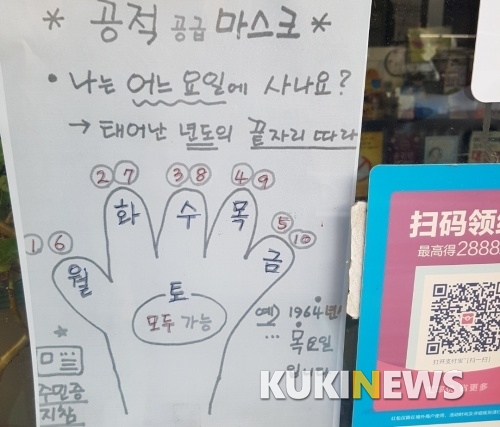 * 공적 공급 마스크 *
• 나는 어느 요일에 사나요?
→ 태어난 년도의 끝자리 따라
② ⑦ ③ ⑧ ④ ⑨
화 수 목
① ⑥ ⑤ ⑩
월 금
토
모두 가능
예) 1964년생
... 목요일
주민증
지참
扫码领
最高得2888
KUKINEWS